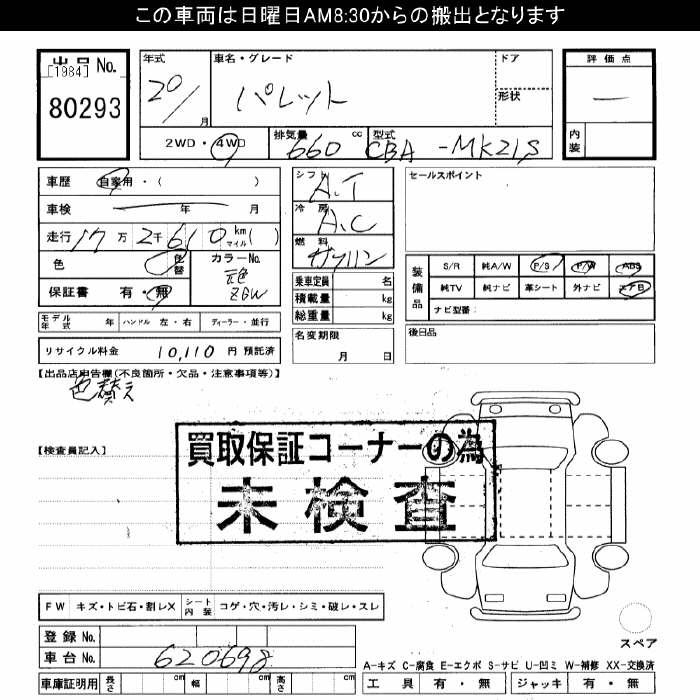 この車両は日曜日AM8:30からの搬出となります
出品 No.
[1984]
80293
年式 20/ 月
車名・グレード パレット
ドア
形状
評価点 —
内装
2WD・4WD 排気量 660 cc 型式 CBA-MK21S
車歴 自家用・( )
車検 年 月
走行 17万 2千 610 km マイル ( )
色 色替 カラーNo. 元色 ZGW
保証書 有・無
シフト A.T
冷房 A.C
燃料 ガソリン
乗車定員 名
積載量 kg
総重量 kg
セールスポイント
装備品 S/R 純A/W P/S P/W ABS
純TV 純ナビ 革シート 外ナビ エアB
ナビ型番:
モデル年式 年 ハンドル 左・右 ディーラー・並行
名変期限 月 日
後日品
リサイクル料金 10,110 円 預託済
【出品店申告欄(不良箇所・欠品・注意事項等)】
色替え
買取保証コーナーの為
未検査
【検査員記入】
FW キズ・トビ石・割レX シート内装 コゲ・穴・汚レ・シミ・破レ・スレ
スペア
登録 No.
車台 No. 620698
A-キズ C-腐食 E-エクボ S-サビ U-凹ミ W-補修 XX-交換済
車庫証明用 長さ cm 幅 cm 高さ cm
工具 有・無 ジャッキ 有・無